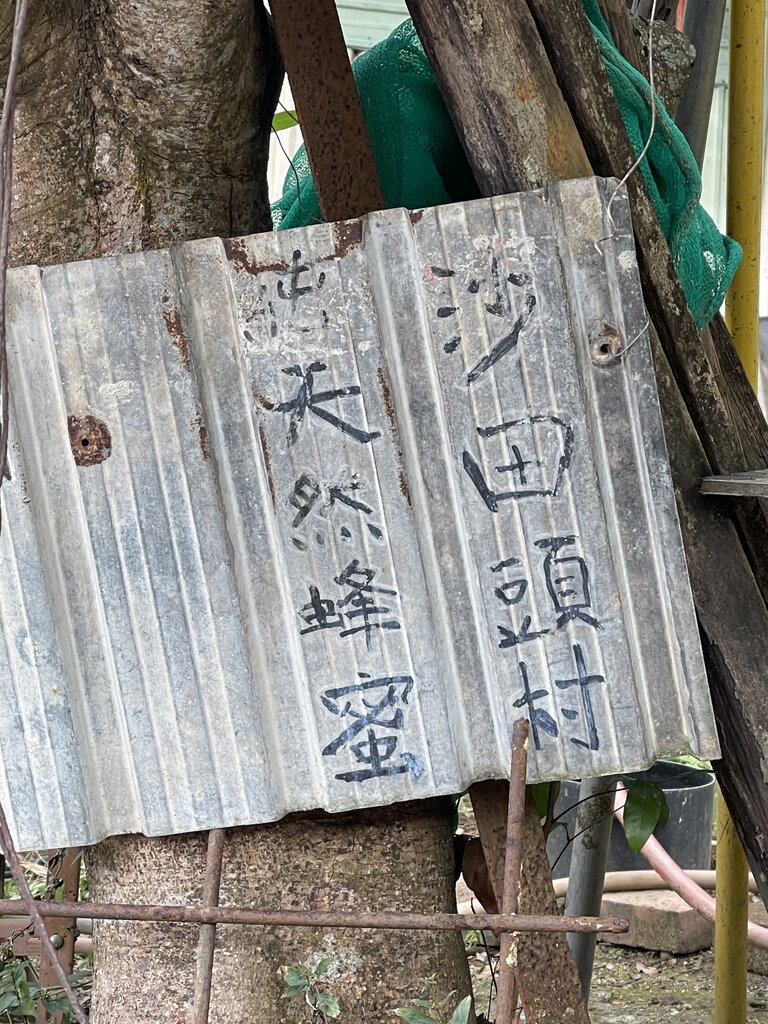 沙田頭村
純天然蜂蜜